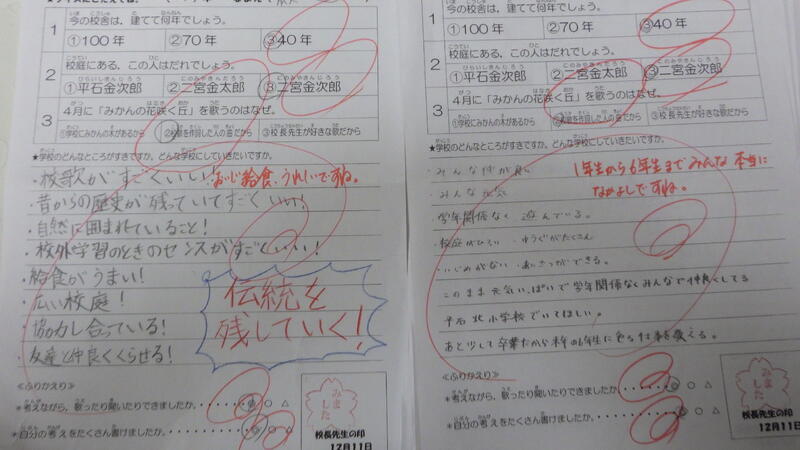 1 今の校舎は、建てて何年でしょう。
①100年 ②70年 ③40年
2 校庭にある、この人はだれでしょう。
①平石金次郎 ②二宮金太郎 ③二宮金次郎
3 4月に「みかんの花咲く丘」を歌うのはなぜ。
①学校にみかんの木があるから ②校歌を作曲した人の曲だから ③校長先生が好きな歌だから
★学校のどんなところがすきですか。どんな学校にしていきたいですか。
・校歌がすごくいい!
給食、うれしいですね。
・昔からの歴史が残っていてすごくいい!
・自然に囲まれていること!
・校外学習のときのセンスがすごくいい!
・給食がうまい!
・広い校庭!
・協力し合っている!
・友達と仲良くくらせる!
伝統を
残していく!
≪ふりかえり≫
*考えながら、歌ったり聞いたりできましたか。 ◎ ○ △
*自分の考えをたくさん書けましたか。 ◎ ○ △
みました
校長先生の印
12月11日
1 今の校舎は、建てて何年でしょう。
①100年 ②70年 ③40年
2 校庭にある、この人はだれでしょう。
①平石金次郎 ②二宮金太郎 ③二宮金次郎
3 4月に「みかんの花咲く丘」を歌うのはなぜ。
①学校にみかんの木があるから ②校歌を作曲した人の曲だから ③校長先生が好きな歌だから
★学校のどんなところがすきですか。どんな学校にしていきたいですか。
・みんな仲が良い。
1年生から6年生までみんな本当に
なかよしですね。
・みんな元気
学年関係なく 遊んでいる。
・校庭がひろい ・ゆうぐがたくさん
・いじめがない ・あいさつができる。
このまま元気いっぱいで学年関係なくみんなで仲良くしてる
平石北小学校でいてほしい。
あと少しで卒業だから
≪ふりかえり≫
*考えながら、歌ったり聞いたりできましたか。 ◎ ○ △
*自分の考えをたくさん書けましたか。 ◎ ○ △
みました
校長先生の印
12月11日